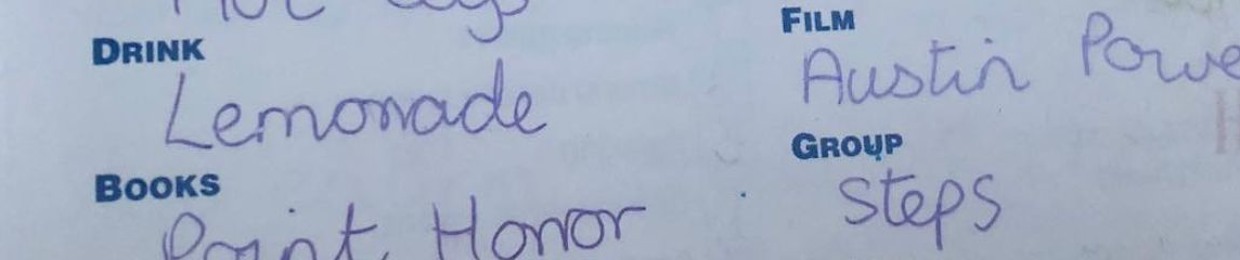 DRINK
Lemonade
BOOKS
Point Horror
FILM
Austin Powe
GROUP
Steps